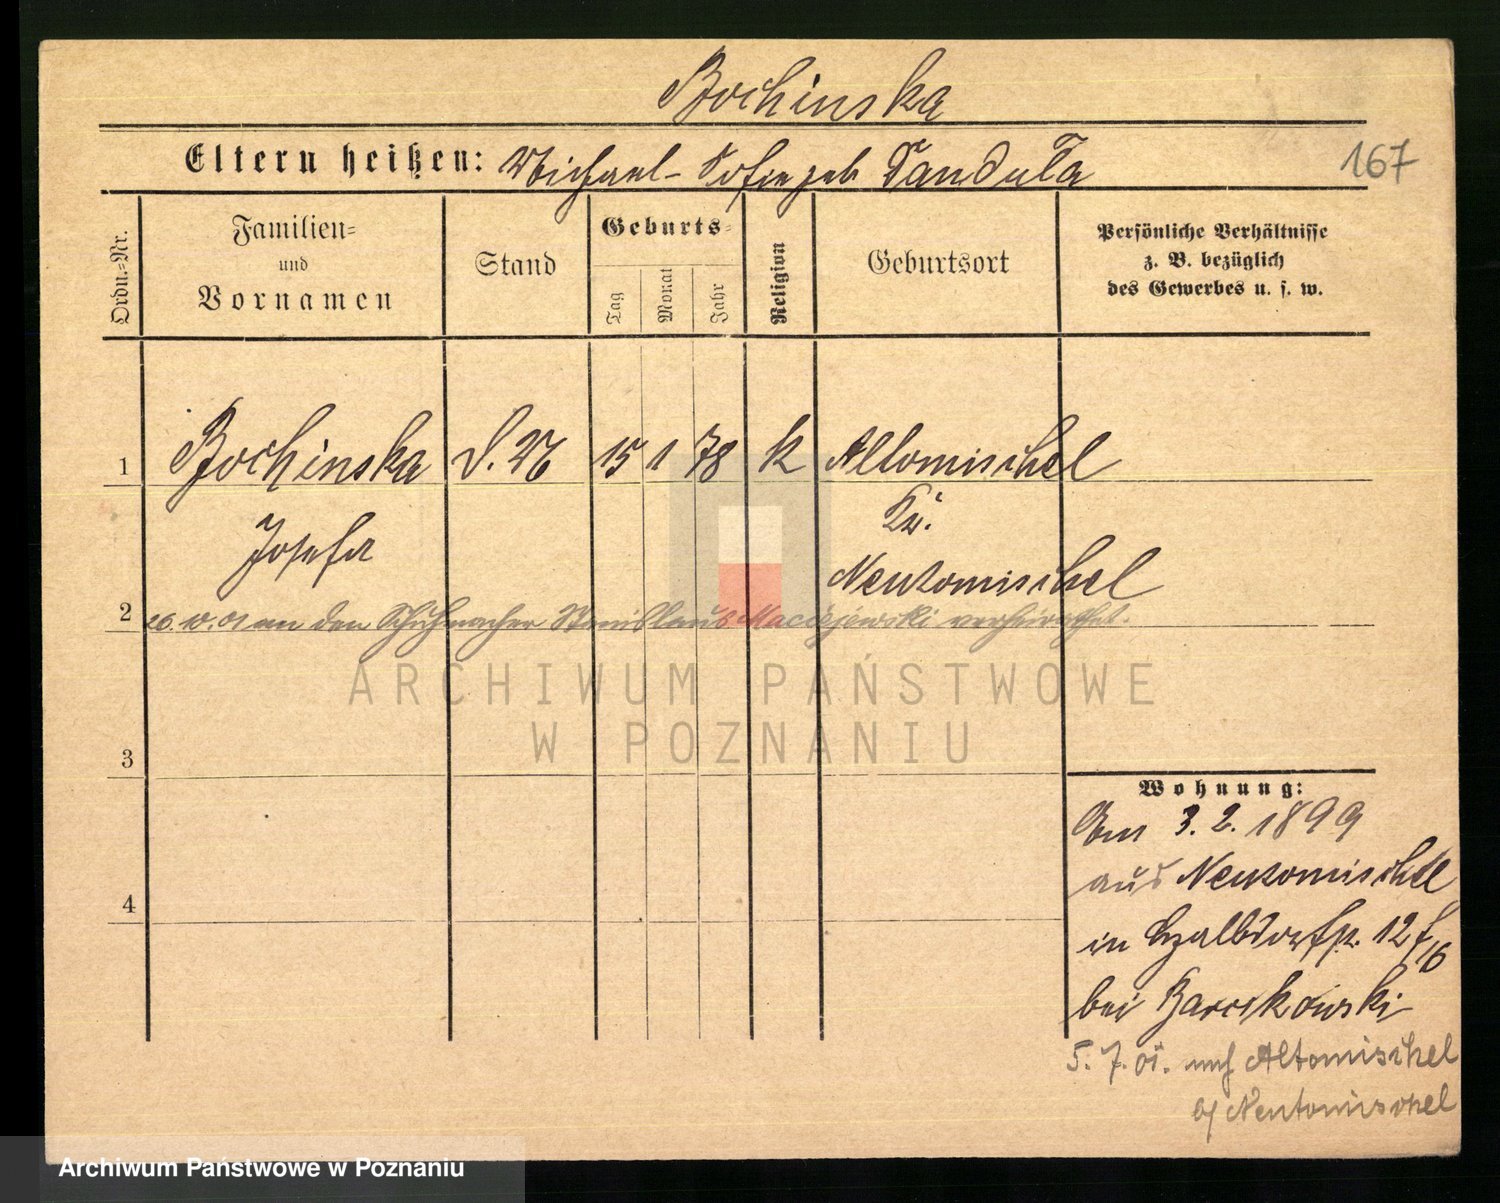 Bochinska
Eltern heißen: Michael - Sofie geb Dandula
167
Ordn.-Nr.
Familien- und Vornamen
Stand
Geburts-
Tag Monat Jahr
Religion
Geburtsort
Persönliche Verhältnisse
z. B. bezüglich
des Gewerbes u. s. w.
1 Bochinska 15 1 78 k Altomischel
Josefa Kr.
Neutomischel
2 an den Schuhmacher Stanislaus Maciejewski verheirathet.
3
4
Wohnung:
Am 3. 2. 1899
aus Neutomischel
in 12
bei Barcikowski
5. 7. 01. nach Altomischel
b/ Neutomischel
ARCHIWUM PAŃSTWOWE
W POZNANIU
Archiwum Państwowe w Poznaniu